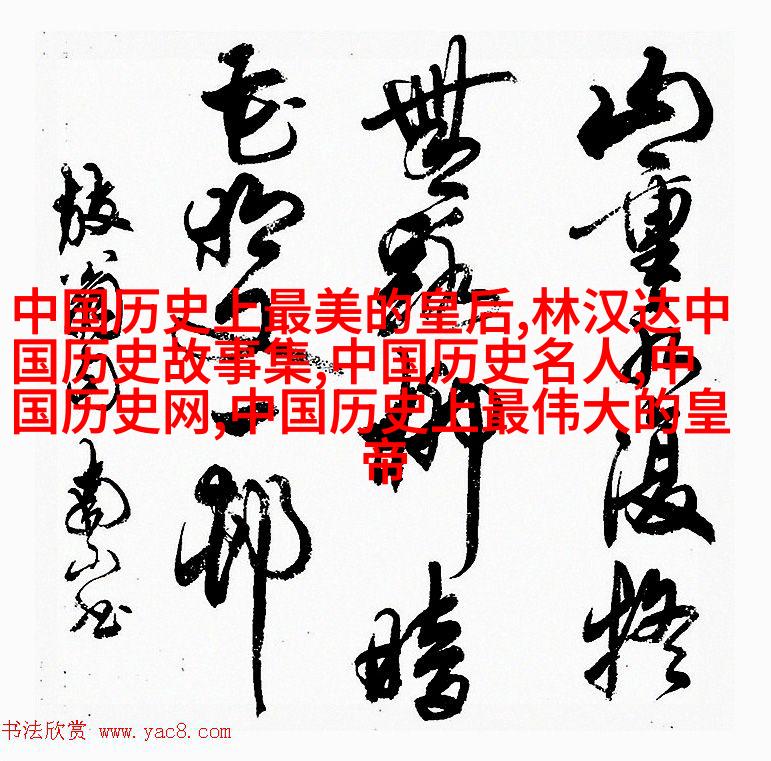 山重水復疑
無路柳暗
花明又一邨
放翁句
中国历史上最美的皇后,林汉达中
国历史故事集,中国历史名人,中
国历史网,中国历史上最伟大的皇
帝
书法欣赏 www.yac8.com